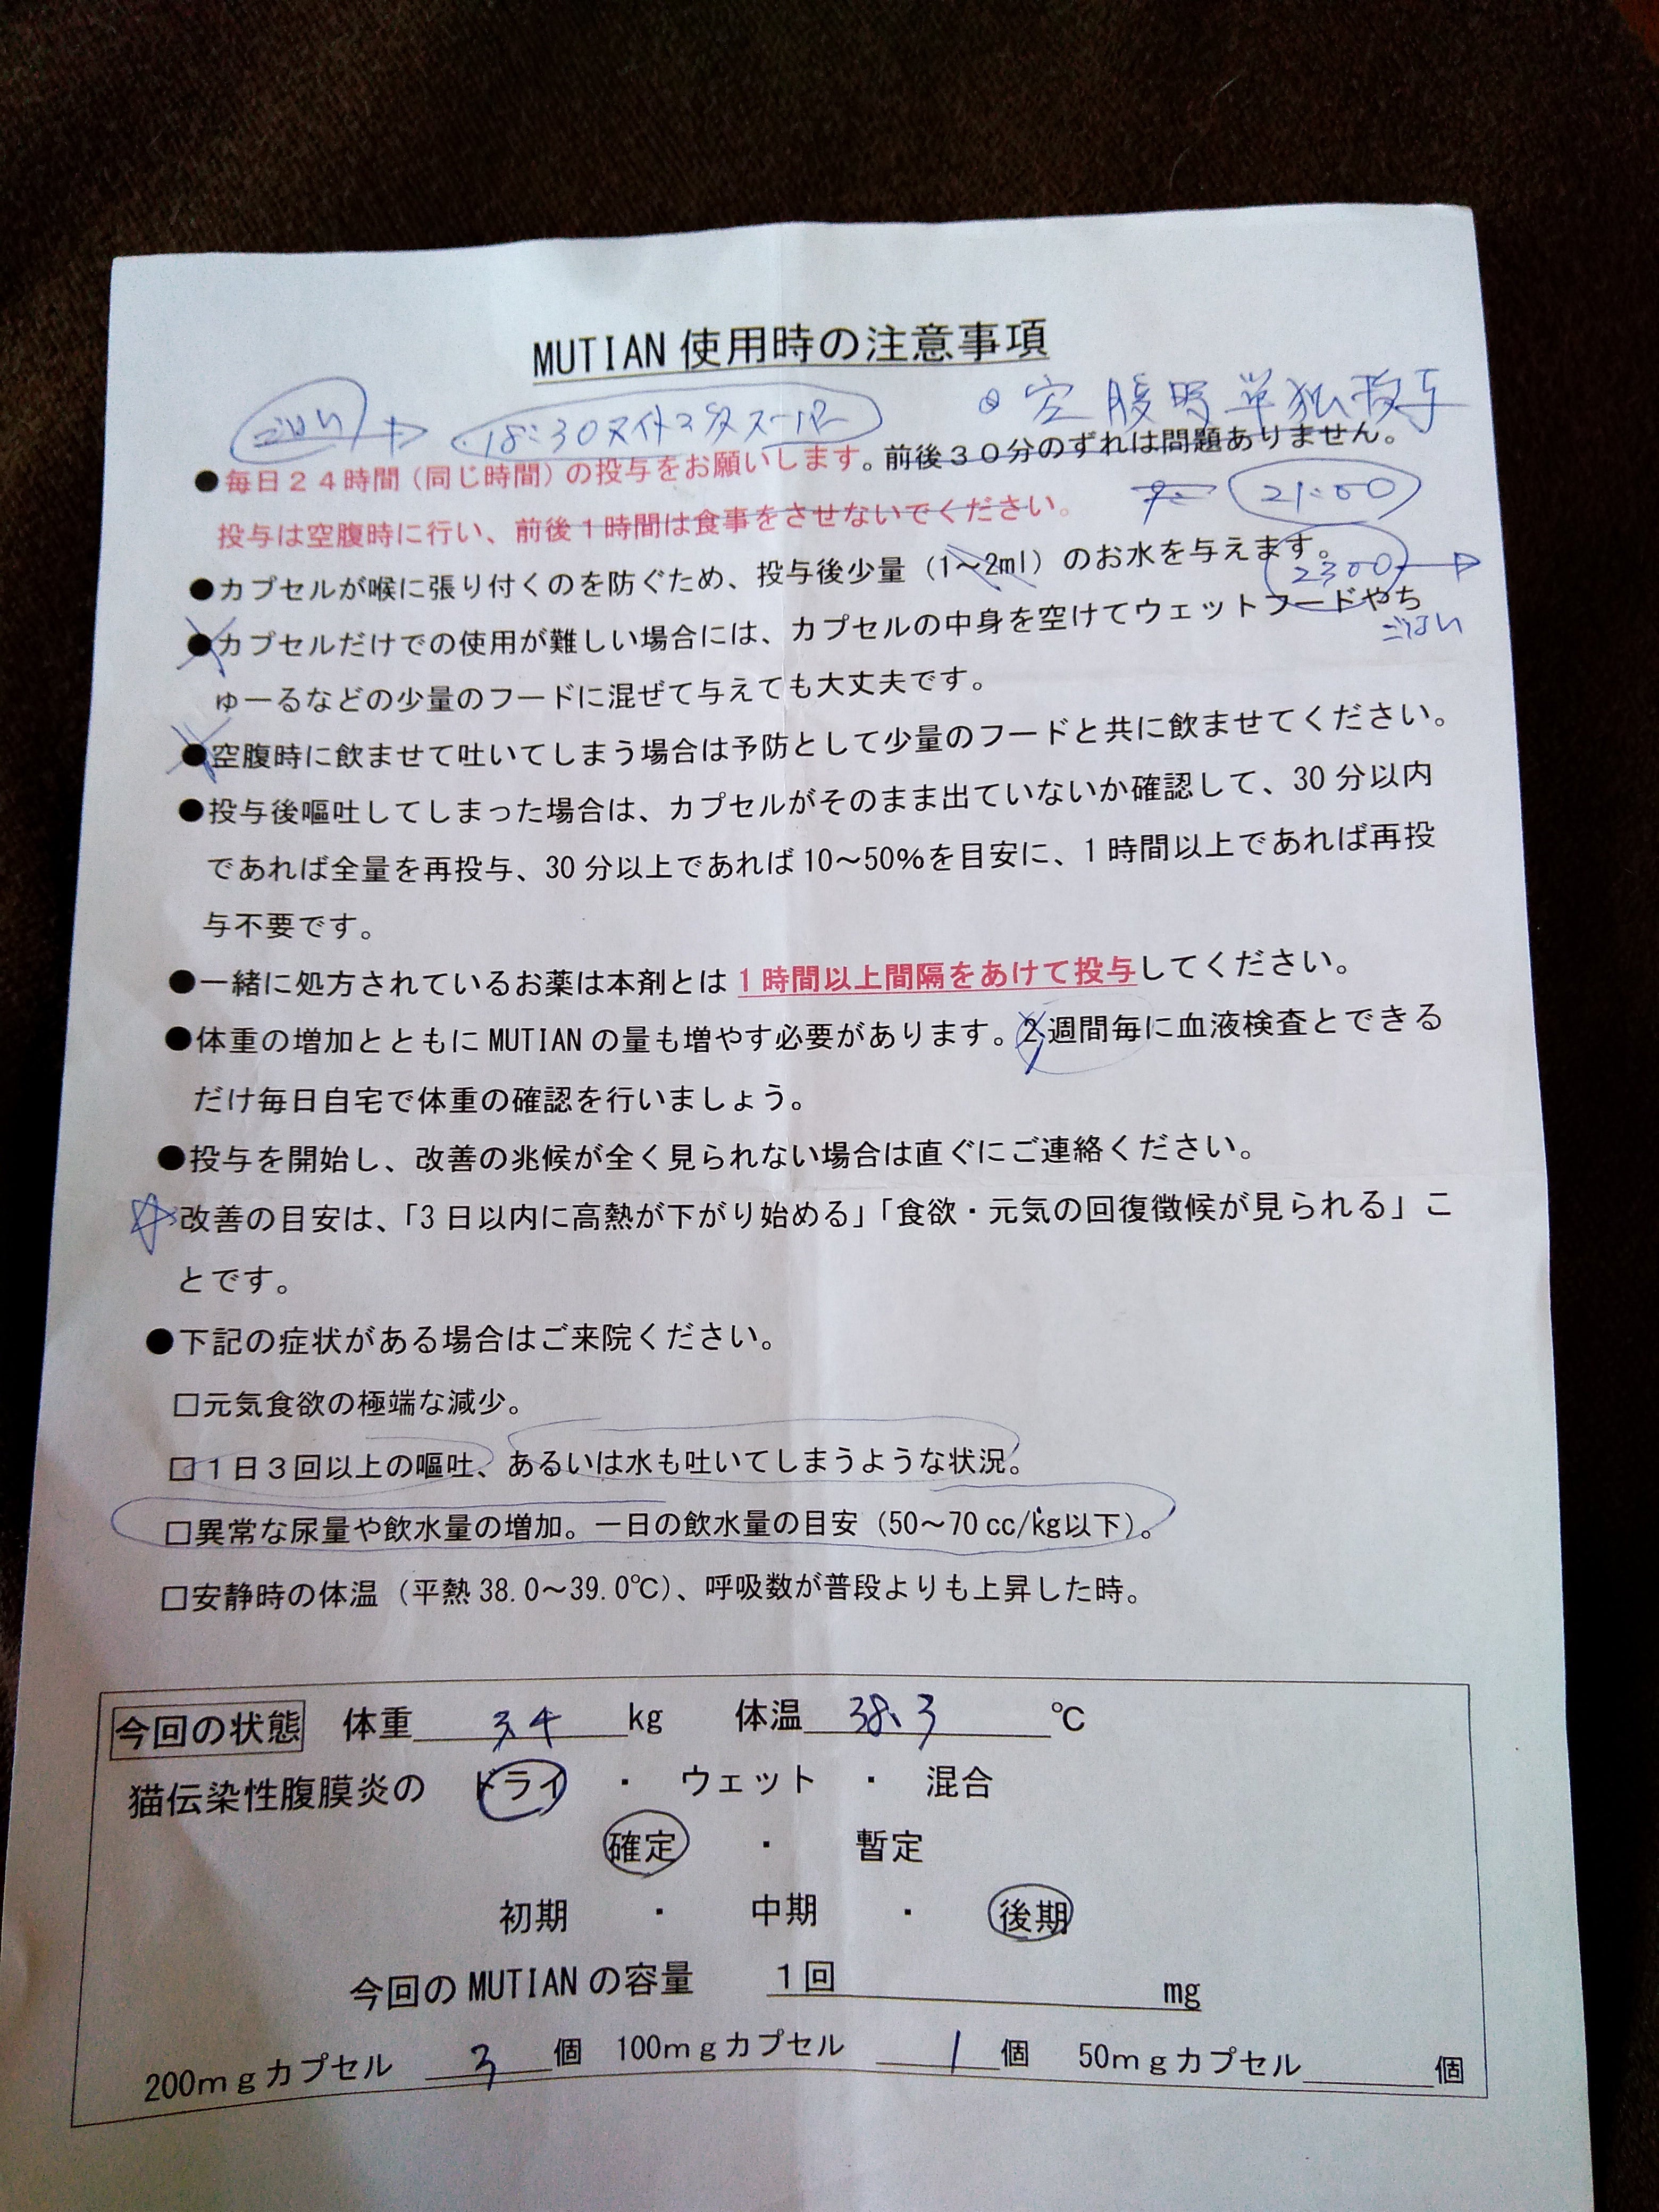 MUTIAN 使用時の注意事項
ごはん → 18:30
◎空腹時単独投与
●毎日２４時間（同じ時間）の投与をお願いします。前後３０分のずれは問題ありません。
投与は空腹時に行い、前後１時間は食事をさせないでください。
21:00
●カプセルが喉に張り付くのを防ぐため、投与後少量（1～2ml）のお水を与えます。
2300 →
●カプセルだけでの使用が難しい場合には、カプセルの中身を空けてウェットフードやち
ごはん
ゅーるなどの少量のフードに混ぜて与えても大丈夫です。
●空腹時に飲ませて吐いてしまう場合は予防として少量のフードと共に飲ませてください。
●投与後嘔吐してしまった場合は、カプセルがそのまま出ていないか確認して、30 分以内
であれば全量を再投与、30 分以上であれば 10～50％を目安に、1 時間以上であれば再投
与不要です。
●一緒に処方されているお薬は本剤とは 1 時間以上間隔をあけて投与してください。
●体重の増加とともに MUTIAN の量も増やす必要があります。2 週間毎に血液検査とできる
だけ毎日自宅で体重の確認を行いましょう。
●投与を開始し、改善の兆候が全く見られない場合は直ぐにご連絡ください。
☆改善の目安は、「3 日以内に高熱が下がり始める」「食欲・元気の回復徴候が見られる」こ
とです。
●下記の症状がある場合はご来院ください。
□元気食欲の極端な減少。
□１日３回以上の嘔吐、あるいは水も吐いてしまうような状況。
□異常な尿量や飲水量の増加。一日の飲水量の目安（50～70 cc/kg以下）。
□安静時の体温（平熱 38.0～39.0℃）、呼吸数が普段よりも上昇した時。
今回の状態 体重 3.4 kg 体温 38.3 ℃
猫伝染性腹膜炎の ドライ ・ ウェット ・ 混合
確定 ・ 暫定
初期 ・ 中期 ・ 後期
今回の MUTIAN の容量 １回 mg
200ｍｇカプセル 3 個 100ｍｇカプセル 1 個 50ｍｇカプセル 個